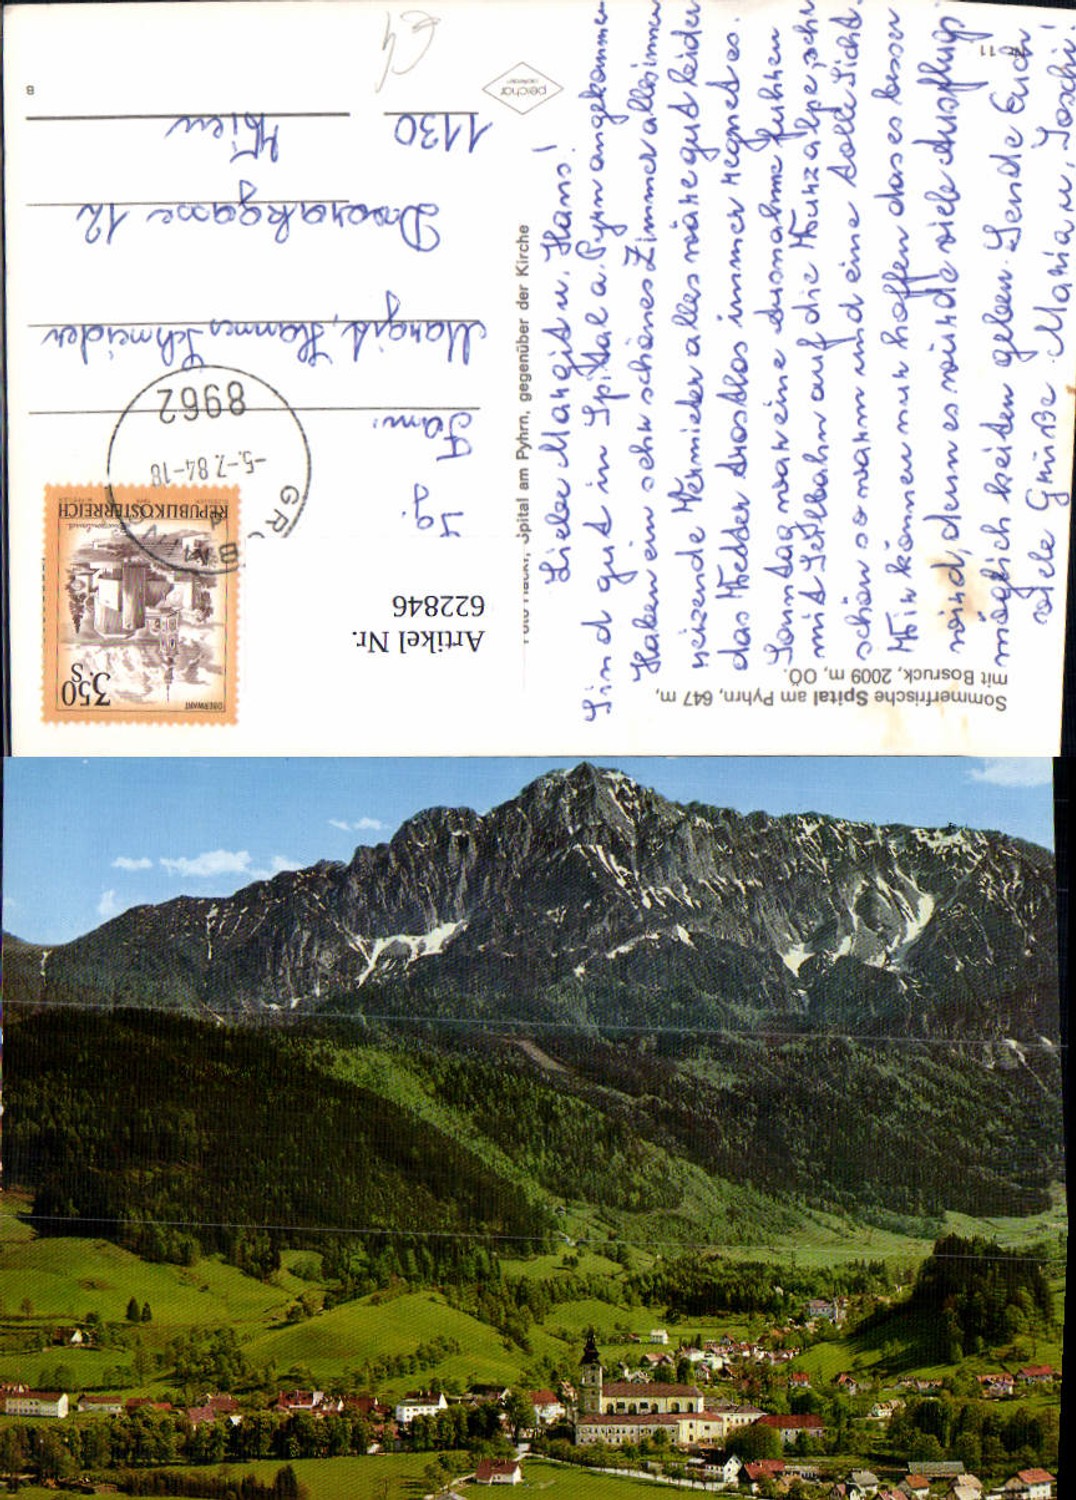 Sommerfrische Spital am Pyhrn, 647 m,
mit Bosruck, 2009 m, OÖ.
11
Liebe Margit u. Hans!
Sind gut in Spittal a. Pyrn angekommen
Haben ein sehr schönes Zimmer alles innen
reizende Vermieter alles wäre gut leider
das Wetter trostlos immer regnet es.
Sonntag war eine Ausnahme fuhren
mit Seilbahn auf die Wurzalpe, sehr
schön so warm und eine tolle Sicht.
Wir können nur hoffen das es besser
wird, denn es würde viele Ausflugs-
möglichkeiten geben. Sende Euch
viele Grüße Maria u. Joschi!
Foto Hackl, Spital am Pyhrn, gegenüber der Kirche
peichär
Artikel Nr.
622846
OBERWART
3.50 S
Burgenland
REPUBLIK ÖSTERREICH
GR
B
-5.-7.84-18
8962
Fam.
Margit, Hannes Schneider
Dvorakgasse 12
1130 Wien
B
€4